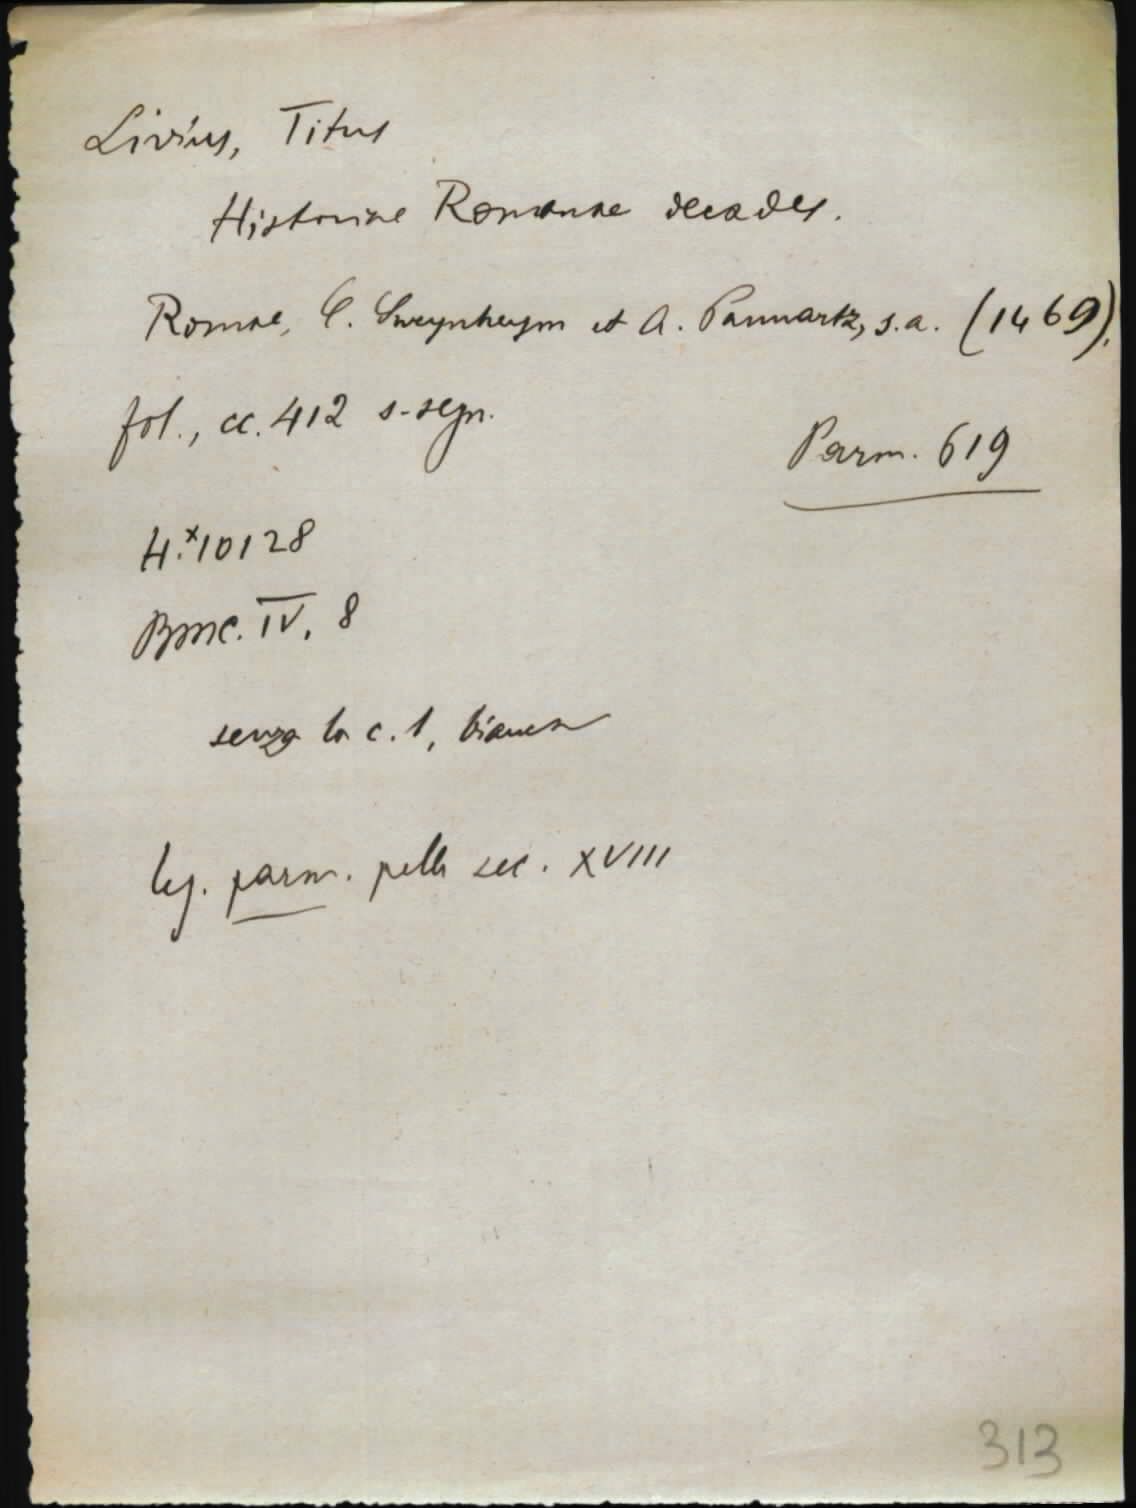 Livius, Titus
Historiae Romanae decades.
Romae, C. Sweynheym et A. Pannartz, s.a. (1469).
fol., cc. 412 s-segn.
Parm. 619
H.x10128
BMC. IV, 8
senza la c. 1, bianca
leg. parm. pelle sec. XVIII
313